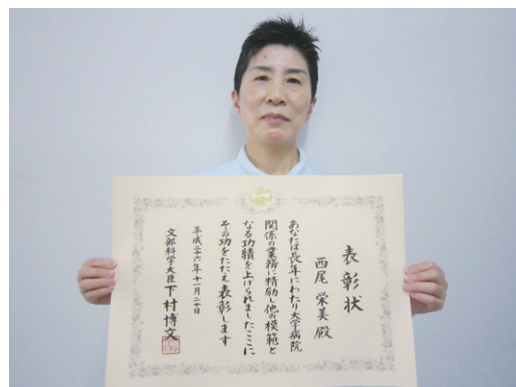 表彰状
西尾 栄美 殿
あなたは長年にわたり大学病院
関係の業務に精励し他の模範と
なる功績を上げられましたここに
その功をたたえ表彰します
平成二十六年十一月二十日
文部科学大臣 下村博文